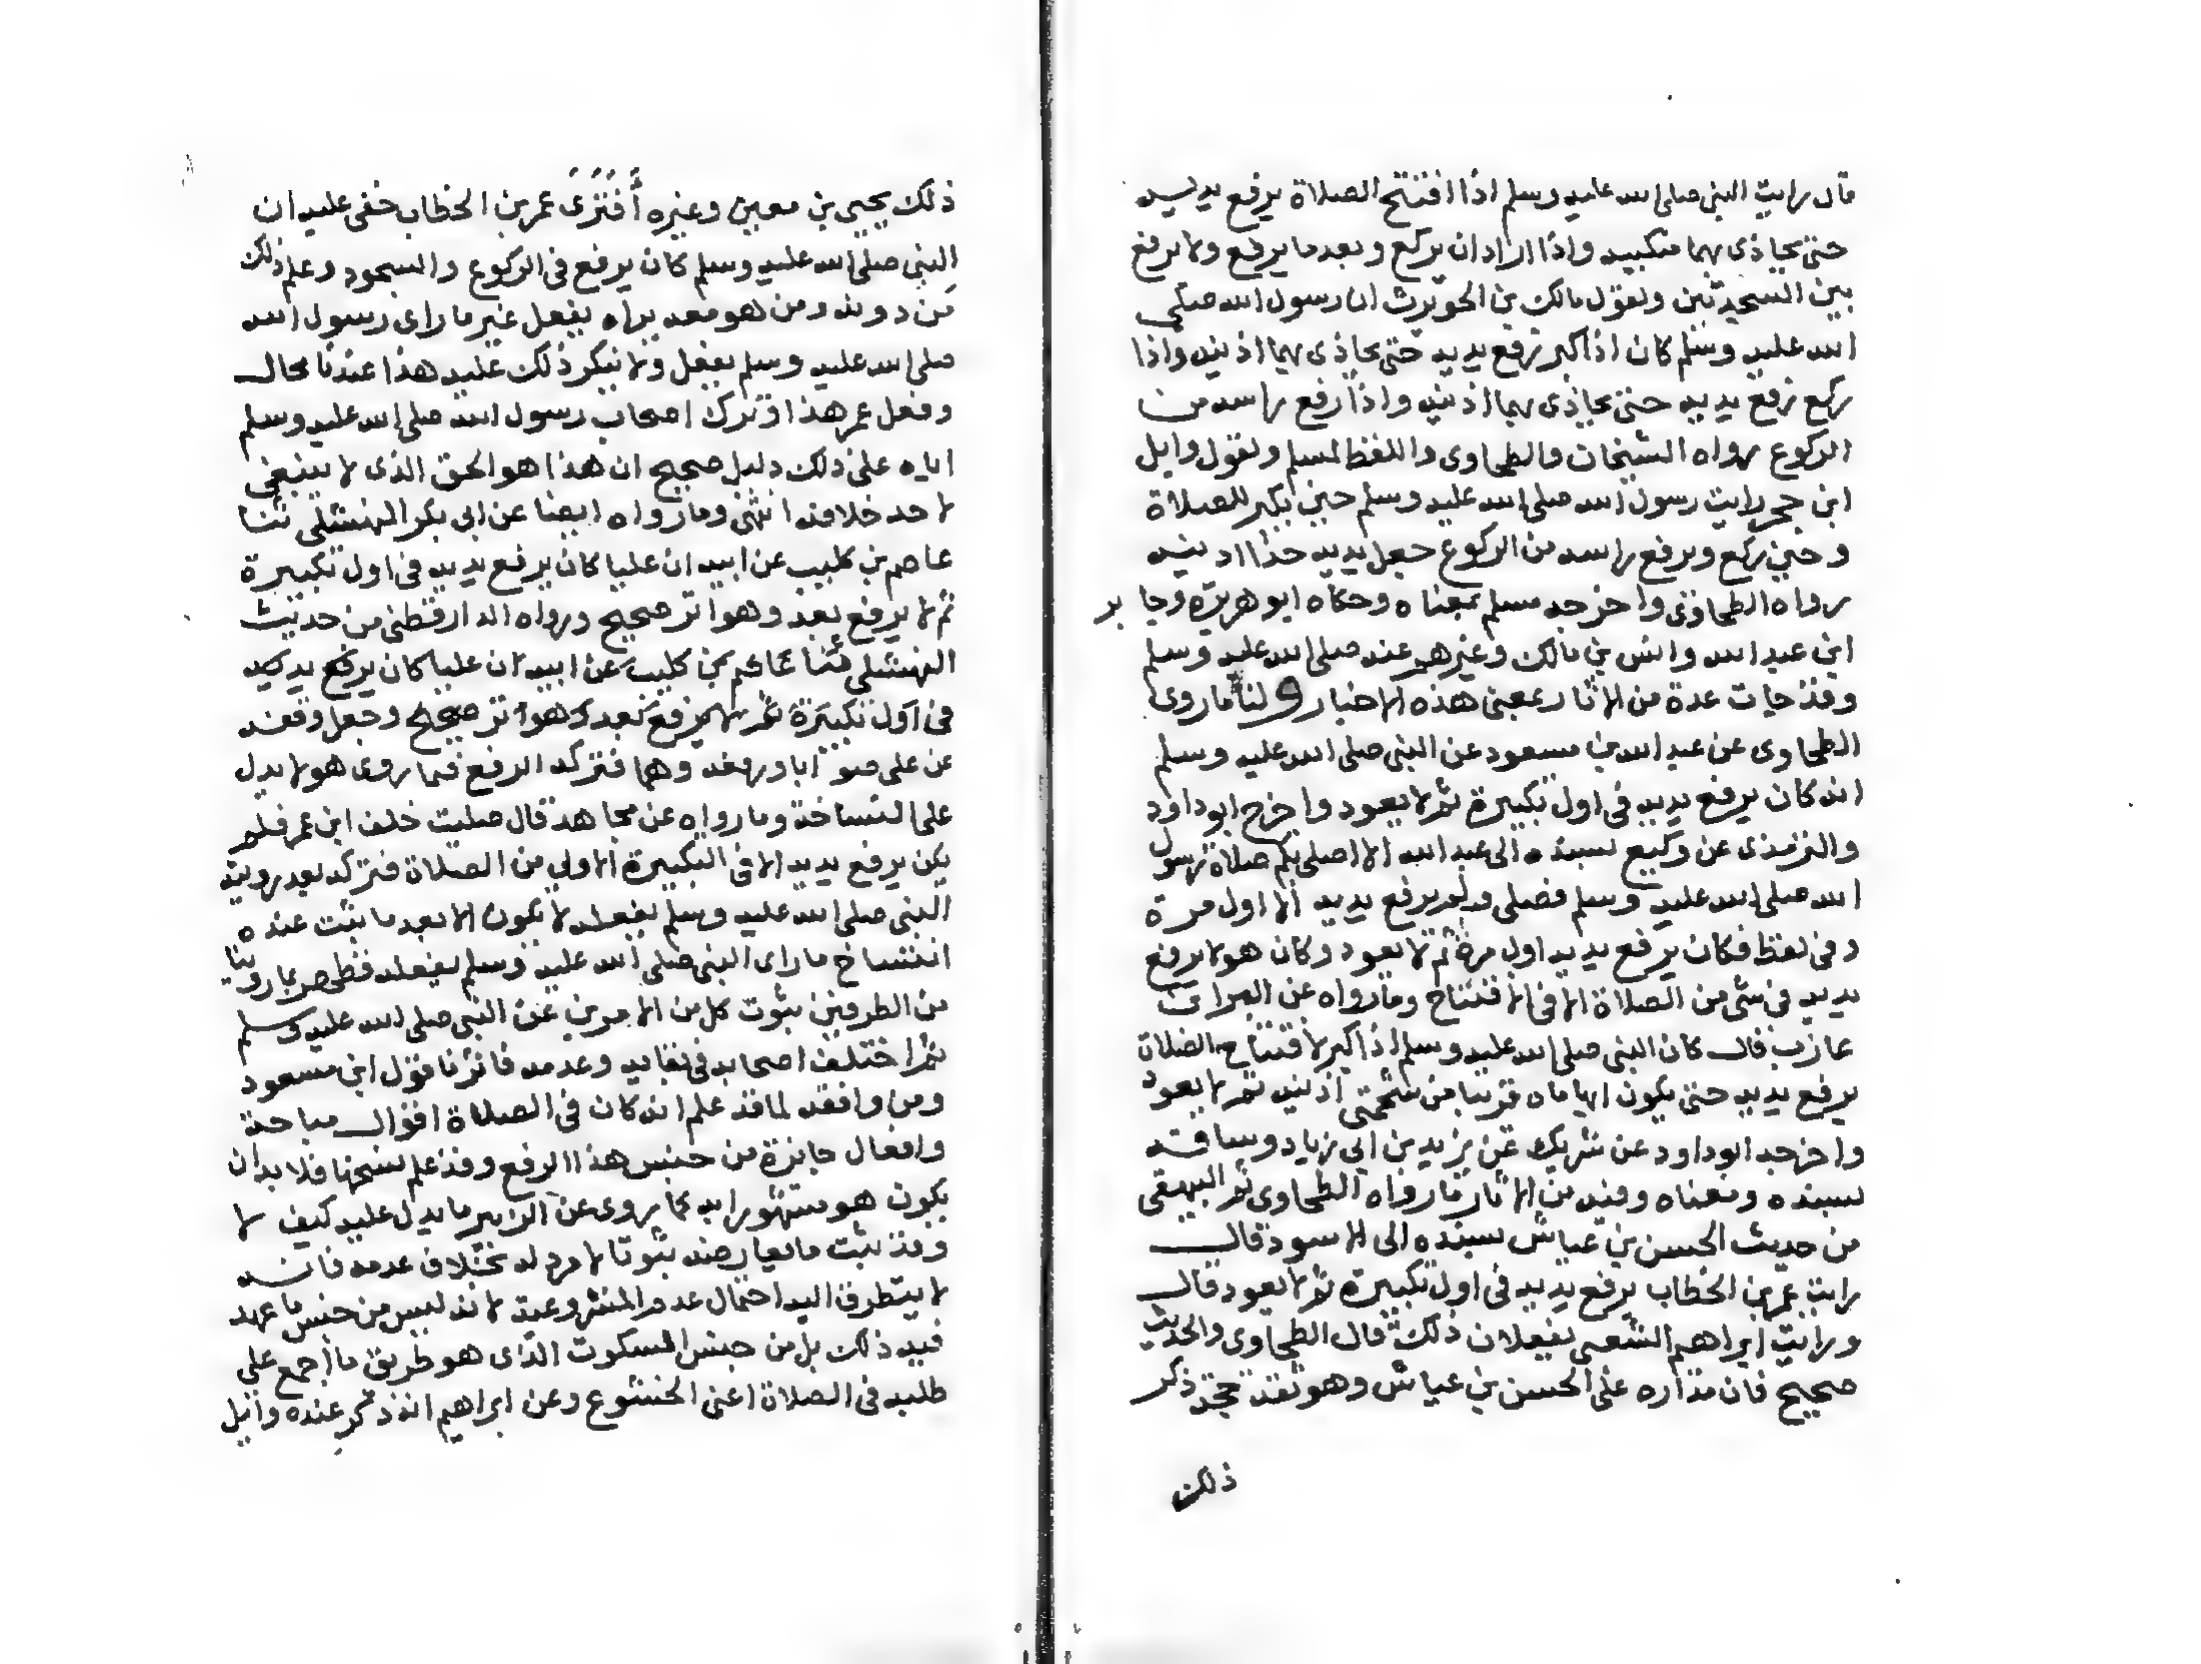 قال رايت النبي صلى الله عليه وسلم اذا افتتح الصلاة يرفع يديه
حتى يحاذى بهما منكبيه واذا اراد ان يركع وبعد ما يرفع ولا يرفع
بين السجدتين ونقول مالك بن الحويرث ان رسول الله صلى
الله عليه وسلم كان اذا كبر رفع يديه حتى يحاذى بهما اذنيه واذا
ركع رفع يديه حتى يحاذى بهما اذنيه واذا رفع راسه من
الركوع رواه الشيخان والطحاوى واللفظ لمسلم ونقول وايل
ابن حجر رايت رسول الله صلى الله عليه وسلم حين يكبر للصلاة
وحين يركع ويرفع راسه من الركوع جعل يديه حذا اذنيه
رواه الطحاوى واخرجه مسلم بمعناه وحكاه ابو هريرة وجابر
ابن عبد الله وانس بن مالك وغيرهم عنه صلى الله عليه وسلم
وقد جات عدة من الاثار بمعنى هذه الاخبار ولنا ما روى
الطحاوى عن عبد الله بن مسعود عن النبي صلى الله عليه وسلم
انه كان يرفع يديه في اول تكبيرة ثم لا يعود واخرج ابو داود
والترمذى عن وكيع بسنده الى عبد الله الا اصلى بكم صلاة رسول
الله صلى الله عليه وسلم فصلى ولم يرفع يديه الا اول مرة
وفى لفظ فكان يرفع يديه اول مرة ثم لا يعود وكان هو لا يرفع
يديه فى شى من الصلاة الا فى الافتتاح وما رواه عن البرا بن
عازب قال كان النبي صلى الله عليه وسلم اذا كبر لافتتاح الصلاة
يرفع يديه حتى يكون ابهاماه قريبا من شحمتى اذنيه ثم لا يعود
واخرجه ابو داود عن شريك عن يزيد بن ابى زياد وساقه
بسنده ومعناه ومنه من الاثار ما رواه الطحاوى ثم البيهقى
من حديث الحسن بن عياش بسنده الى الاسود قال
رايت عمر بن الخطاب يرفع يديه فى اول تكبيرة ثم لا يعود قال
ورايت ابراهيم الشعبى يفعلان ذلك قال الطحاوى والحديث
صحيح فان مداره على الحسن بن عياش وهو ثقة حجة ذكر
ذلك
ذلك يحيى بن معين وغيره أفترى عمر بن الخطاب خفى عليه ان
النبي صلى الله عليه وسلم كان يرفع فى الركوع والسجود وعلم ذلك
من دونه ومن هو معه يراه يفعل غير ما راى رسول الله
صلى الله عليه وسلم يفعل ولا ينكر ذلك عليه هذا عندنا محال
وفعل عمر هذا وترك اصحاب رسول الله صلى الله عليه وسلم
اياه على ذلك دليل صحيح ان هذا هو الحق الذى لا ينبغى
لاحد خلافه انتهى وما رواه ايضا عن ابى بكر النهشلى ثنا
عاصم بن كليب عن ابيه ان عليا كان يرفع يديه فى اول تكبيرة
ثم لا يرفع بعد وهو اثر صحيح ورواه الدارقطنى من حديث
النهشلى ثنا عاصم بن كليب عن ابيه ان عليا كان يرفع يديه
فى اول تكبيرة ثم لا يرفع بعد وهو اثر صحيح وجعل وقفه
عن على صوابا ورفعه وهما فتركه الرفع فيما روى هو لا يدل
على النساخة وما رواه عن مجاهد قال صليت خلف ابن عمر فلم
يكن يرفع يديه الا فى التكبيرة الاولى من الصلاة فتركه بعد رويته
النبي صلى الله عليه وسلم يفعله لا يكون الا بعد ما ثبت عنده
انتساخ ما راى النبي صلى الله عليه وسلم يفعله فظهر بما روينا
من الطرفين ثبوت كل من الامرين عن النبي صلى الله عليه وسلم
ثم اختلف اصحابه فى بقايه وعدمه فاثرنا قول ابن مسعود
ومن وافقه لما قد علم انه كان فى الصلاة اقوال مباحة
وافعال جايزة من جنس هذا الرفع وقد علم نسخها فلا بد ان
يكون هو مشهورا به كما يروى عن الزبير ما يدل عليه كيف لا
وقد ثبت ما يعارضه ثبوتا لا مرد له بخلاف عدمه فانه
لا يتطرق اليه احتمال عدم المشروعية لانه ليس من جنس ما عهد
فيه ذلك بل من جنس السكوت الذى هو طريق ما اجمع على
طلبه فى الصلاة اعنى الخشوع وعن ابراهيم انه ذكر عنده وائل